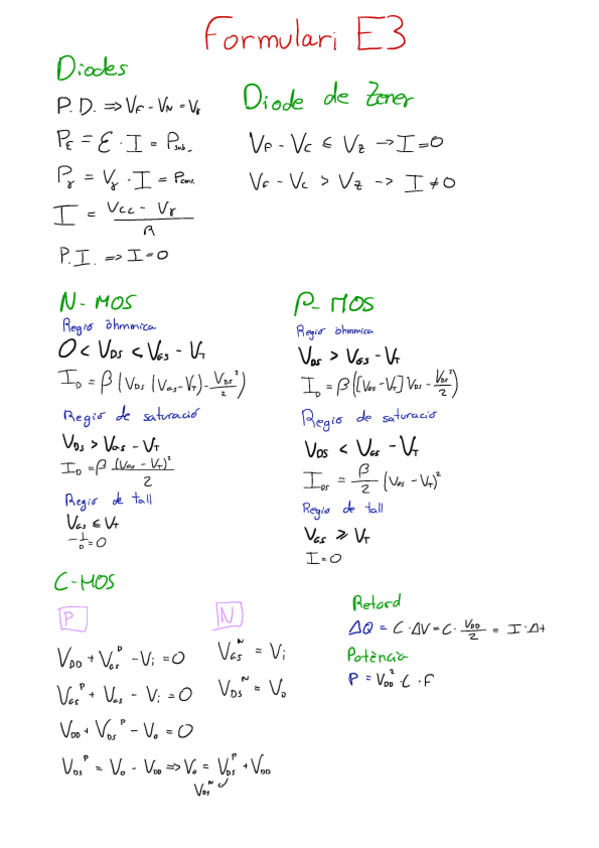 Formulari E3
Diodes
P.D. ⇒ VF - VN = Vγ
Pε = ε · I = Psub.
Pγ = Vγ · I = Pcons.
I = (Vcc - Vγ) / R
P.I. ⇒ I = 0
Diode de Zener
VP - VC ≤ VZ → I = 0
VF - VC > VZ -> I ≠ 0
N-MOS
Regio òhmmica
0 < VDS < VGS - VT
ID = β (VDS (VGS - VT) - VDS²/2)
Regió de saturació
VDS > VGS - VT
ID = β (VGS - VT)²/2
Regio de tall
VGS ≤ VT
ID = 0
P-MOS
Regio òhmmica
VDS > VGS - VT
ID = β ([VGS - VT] VDS - VDS²/2)
Regio de saturació
VDS < VGS - VT
IDS = β/2 (VGS - VT)²
Regio de tall
VGS ≥ VT
I = 0
C-MOS
P
VDD + VGS^P - Vi = 0
VGS^P + VGS - Vi = 0
VDD + VDS^P - Vo = 0
VDS^P = Vo - VDD ⇒ Vo = VDS^P + VDD
VDS^N
N
VGS^N = Vi
VDS^N = Vo
Retard
ΔQ = C · ΔV = C · VDD/2 = I · Δt
Potència
P = VDD² · C · F